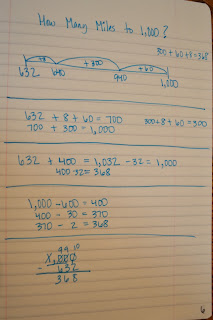 How Many Miles to 1,000?
300+60+8=368
+8 +300 +60
632 640 940 1,000
632 + 8 + 60 = 700
300+8+60=
700 + 300 = 1,000
632 + 400 = 1,032 - 32 = 1,000
400-32=368
1,000 - 600 = 400
400 - 30 = 370
370 - 2 = 368
9 9 10
1,000
- 632
368
6